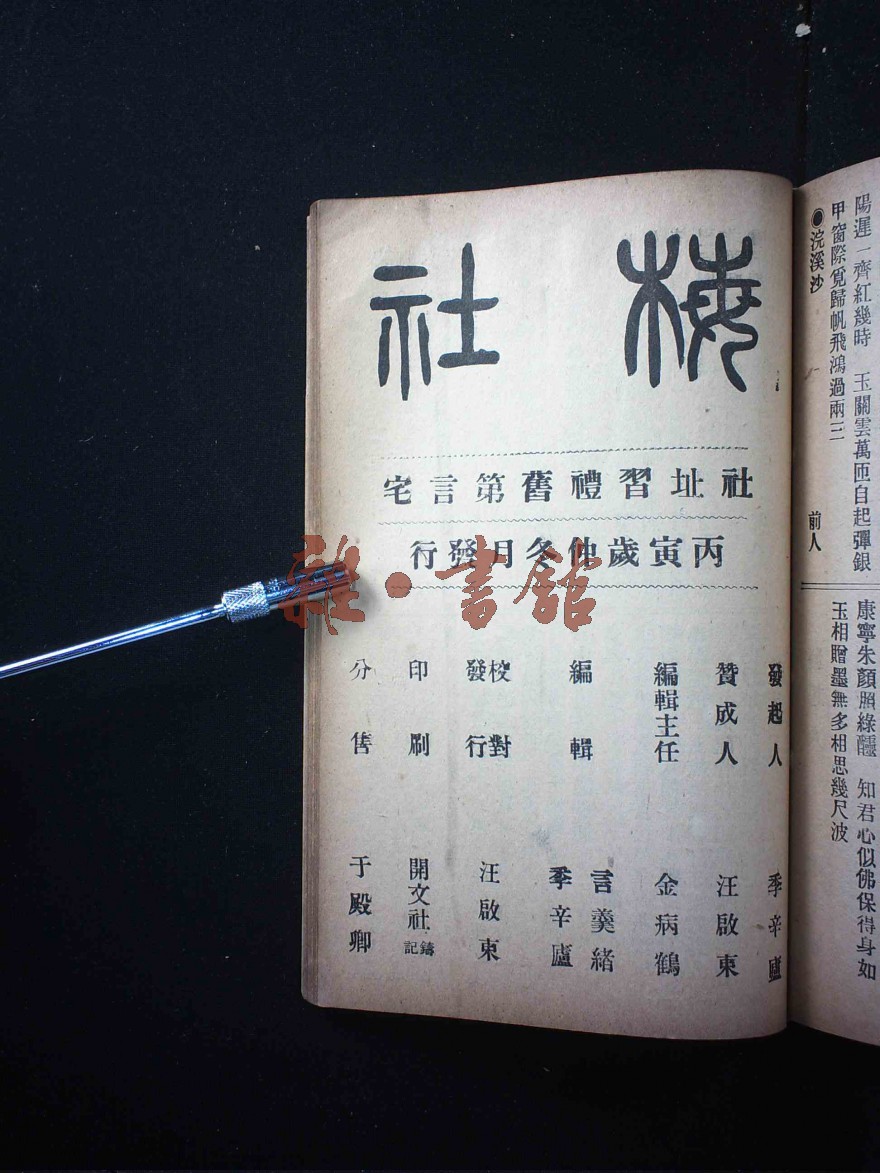 陽遲一齊紅幾時　玉關雲萬匝自起彈銀
甲窗際覓歸帆飛鴻過兩三
◉浣溪沙　前人
康寧朱顏照綠醽　知君心似佛保得身如
玉相贈墨無多相思幾尺波
梅社
社址習禮舊第言宅
丙寅歲仲冬月發行
發起人　季辛廬
贊成人　汪啟東
編輯主任　金病鶴
編輯　言羹緒
季辛廬
校對
發行　汪啟東
印刷　開文社鑄記
分售　于殿卿
雜·書舘